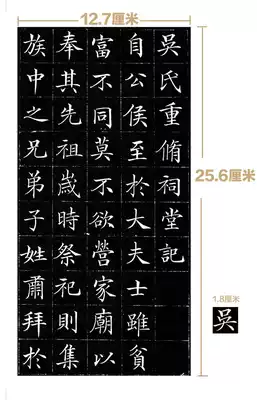 12.7厘米
吳氏重脩祠堂記
自公侯至於大夫士雖貧
富不同莫不欲營家廟以
奉其先祖歲時祭祀則集
族中之兄弟子姓肅拜於
25.6厘米
1.8厘米
吳